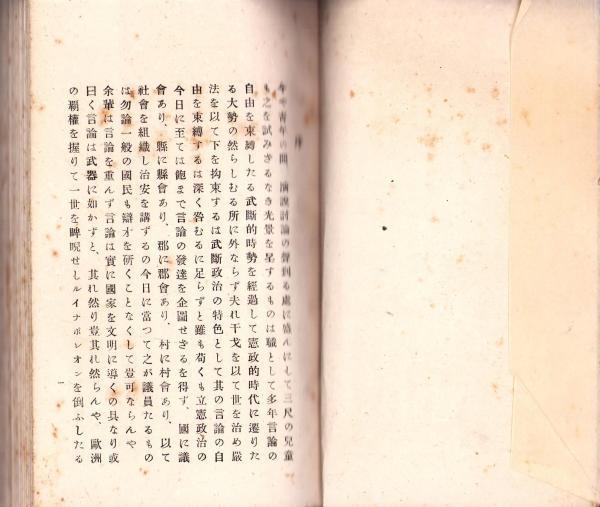 序
年や青年の間、演說討論の聲到る處に盛んにして三尺の兒童
も之を試みざるなき光景を呈するものは職として多年言論の
自由を束縛したる武斷的時勢を經過して憲政的時代に遷りた
る大勢の然らしむる所に外ならず夫れ干戈を以て世を治め嚴
法を以て下を拘束するは武斷政治の特色として其の言論の自
由を束縛するは深く咎むるに足らずと雖も苟くも立憲政治の
今日に至ては飽まで言論の發達を企圖せざるを得ず、國に議
會あり、縣に縣會あり、郡に郡會あり、村に村會あり、以て
社會を組織し治安を講ずるの今日に當つて之が議員たるもの
は勿論一般の國民も辯才を硏くことなくして豈可ならんや
余輩は言論を重んず言論は實に國家を文明に導くの具なり或
曰く言論は武器に如かずと、其れ然り豈其れ然らんや、歐洲
の覇權を握りて一世を睥睨せしルイナポレオンを倒ふしたる
一